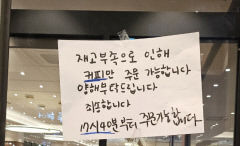 재고부족으로 인해
커피만 주문 가능합니다
양해부탁드립니다
죄송합니다
17시40분부터 주문가능합니다